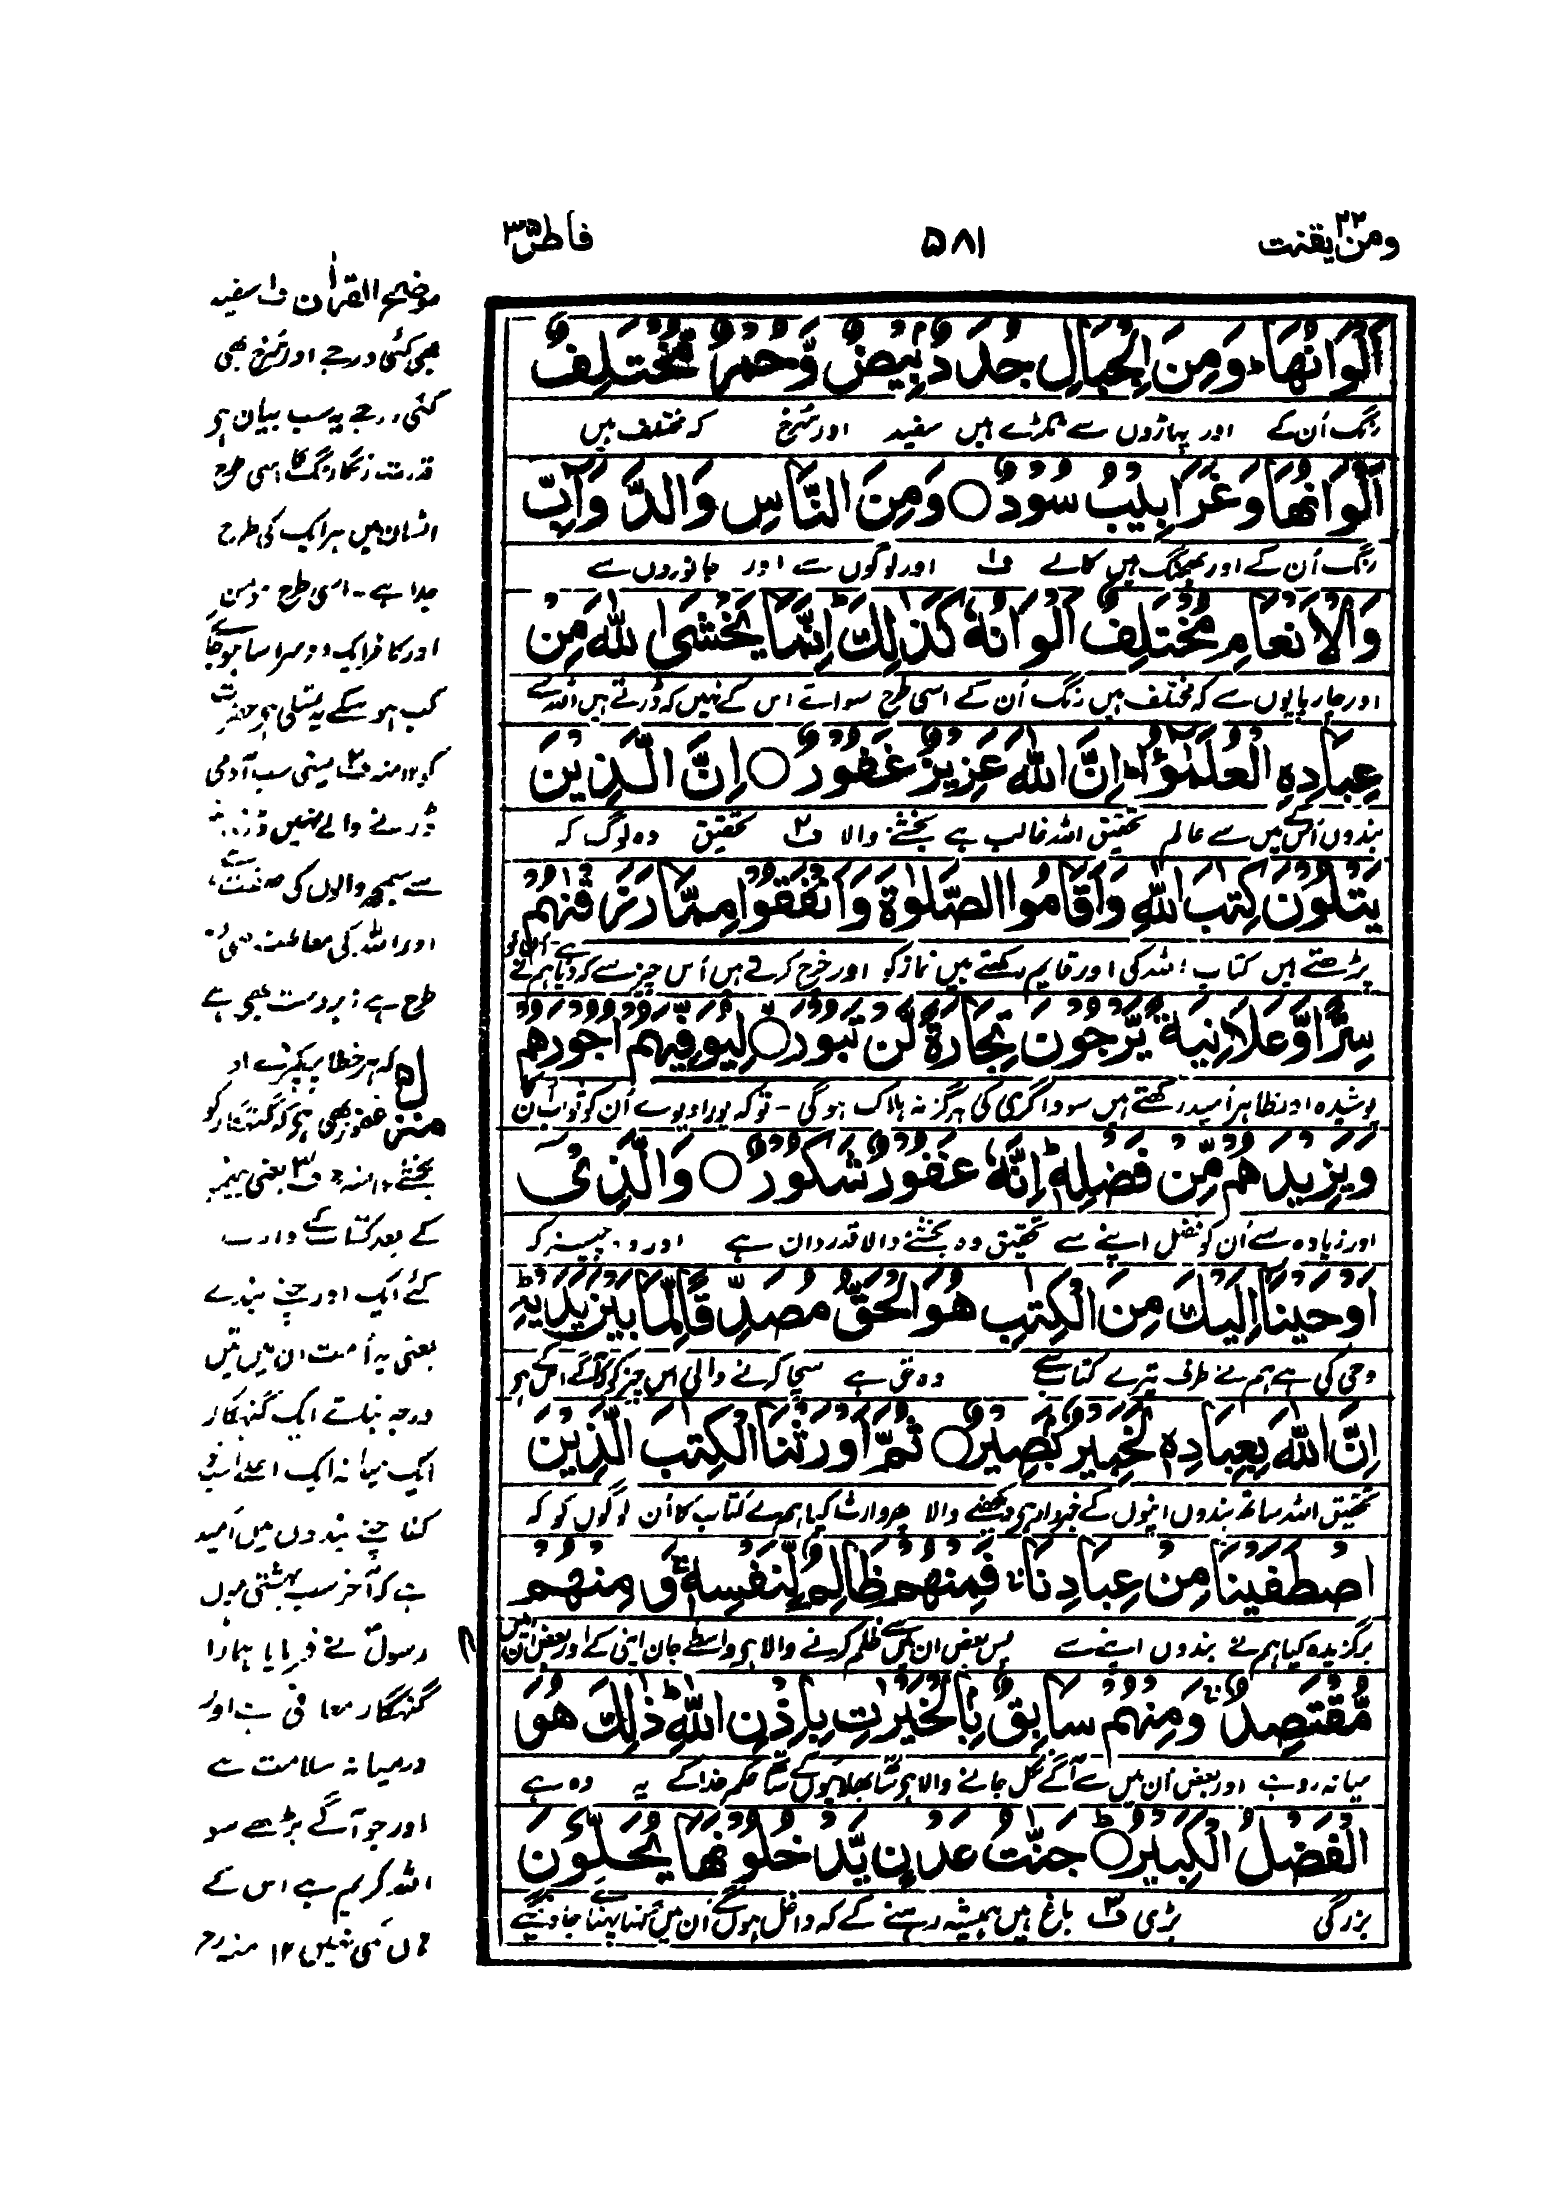 ومن یقنت ۲۲
۵۸۱
فاطر ۳۵
اَلْوَانُهَا ؕ وَمِنَ الْجِبَالِ جُدَدٌۢ بِیْضٌ وَّحُمْرٌ مُّخْتَلِفٌ
رنگ اُن کے اور پہاڑوں سے ٹکڑے ہیں سفید اور سُرخ کہ مختلف ہیں
اَلْوَانُهَا وَغَرَابِیْبُ سُوْدٌ ○ وَمِنَ النَّاسِ وَالدَّوَآبِّ
رنگ اُن کے اور بھجنگ ہیں کالے ف۱ اور لوگوں سے اور جانوروں سے
وَالْاَنْعَامِ مُخْتَلِفٌ اَلْوَانُهٗ كَذٰلِكَ ؕ اِنَّمَا یَخْشَی اللّٰهَ مِنْ
اور چارپایوں سے کہ مختلف ہیں رنگ اُن کے اسی طرح سوائے اس کے نہیں کہ ڈرتے ہیں اللہ سے
عِبَادِهِ الْعُلَمٰٓؤُا ؕ اِنَّ اللّٰهَ عَزِیْزٌ غَفُوْرٌ ○ اِنَّ الَّذِیْنَ
بندوں اُس کے میں سے عالم تحقیق اللہ غالب ہے بخشنے والا ف۲ تحقیق وہ لوگ کہ
یَتْلُوْنَ كِتٰبَ اللّٰهِ وَاَقَامُوا الصَّلٰوةَ وَاَنْفَقُوْا مِمَّا رَزَقْنٰهُمْ
پڑھتے ہیں کتاب اللہ کی اور قایم رکھتے ہیں نماز کو اور خرچ کرتے ہیں اُس چیز سے کہ دیا ہم نے ہے اُن کو
سِرًّا وَّعَلَانِیَةً یَّرْجُوْنَ تِجَارَةً لَّنْ تَبُوْرَ ○ لِیُوَفِّیَهُمْ اُجُوْرَهُمْ
پوشیدہ اور ظاہر اُمید رکھتے ہیں سوداگری کی ہرگز نہ ہلاک ہوگی - توکہ پورا دیوے اُن کو ثواب اُن کا
وَیَزِیْدَهُمْ مِّنْ فَضْلِهٖ ؕ اِنَّهٗ غَفُوْرٌ شَكُوْرٌ ○ وَالَّذِیْٓ
اور زیادہ دے اُن کو فضل اپنے سے تحقیق وہ بخشنے والا قدردان ہے اور وہ چیز کہ
اَوْحَیْنَآ اِلَیْكَ مِنَ الْكِتٰبِ هُوَ الْحَقُّ مُصَدِّقًا لِّمَا بَیْنَ یَدَیْهِ
وحی کی ہے ہم نے طرف تیرے کتاب سے وہ حق ہے سچا کرنے والی اس چیز کو کہ آگے اس کے ہو
اِنَّ اللّٰهَ بِعِبَادِهٖ لَخَبِیْرٌۢ بَصِیْرٌ ○ ثُمَّ اَوْرَثْنَا الْكِتٰبَ الَّذِیْنَ
تحقیق اللہ ساتھ بندوں اپنوں کے خبردار ہے دیکھنے والا پھر وارث کیا ہم نے کتاب کا اُن لوگوں کو کہ
اصْطَفَیْنَا مِنْ عِبَادِنَا ۚ فَمِنْهُمْ ظَالِمٌ لِّنَفْسِهٖ ۚ وَمِنْهُمْ
برگزیدہ کیا ہم نے بندوں اپنے سے پس بعض ان میں سے ظلم کرنے والا ہے واسطے جان اپنی کے اور بعض ان میں
مُّقْتَصِدٌ ۚ وَمِنْهُمْ سَابِقٌۢ بِالْخَیْرٰتِ بِاِذْنِ اللّٰهِ ؕ ذٰلِكَ هُوَ
میانہ رو ہے اور بعض اُن میں سے آگے نکل جانے والا ہے ساتھ بھلائیوں کے ساتھ حکم خدا کے یہ وہ ہے
الْفَضْلُ الْكَبِیْرُ ○ ؕ جَنّٰتُ عَدْنٍ یَّدْخُلُوْنَهَا یُحَلَّوْنَ
بزرگی بڑی ف۳ باغ ہیں ہمیشہ رہنے کے کہ داخل ہوں گے اُن میں گہنا پہنائے جاوینگے
موضح القرآن ف۱ سفید
بھی کئی درجے اور سُرخ بھی
کئی درجے یہ سب بیان ہے
قدرت رنگارنگ کا اسی طرح
انسان میں ہر ایک کی طرح
جدا ہے - اسی طرح مومن
اور کافر ایک دوسرا سا ہوجائے
کب ہوسکے یہ تسلی ہے حضرت
کو ۱۲ منہ ف۲ یعنی سب آدمی
ڈرنے والے نہیں ڈرنا
سے سمجھ والوں کی صفت ہے
اور اللہ کی معاملت بھی دو
طرح ہے زبردست بھی ہے
کہ ہر خطا پر پکڑے اور
غفور بھی ہے کہ گنہگار کو
بخشے ۱۲ منہ ف۳ یعنی پیغمبر
کے بعد کتاب کے وارث
کئے ایک اور چنے بندے
یعنی یہ اُمت ان میں تین
درجہ بتائے ایک گنہگار
ایک میانہ ایک اعلے سب
گنا چنے بندوں میں اُمید
ہے کہ آخر سب بہشتی ہوں
رسول نے فرمایا ہمارا
گنہگار معاف ہے اور
درمیانہ سلامت ہے
اور جو آگے بڑھے سو
اللہ کریم ہے اس کے
ہاں کمی نہیں ۱۲ منہ رح